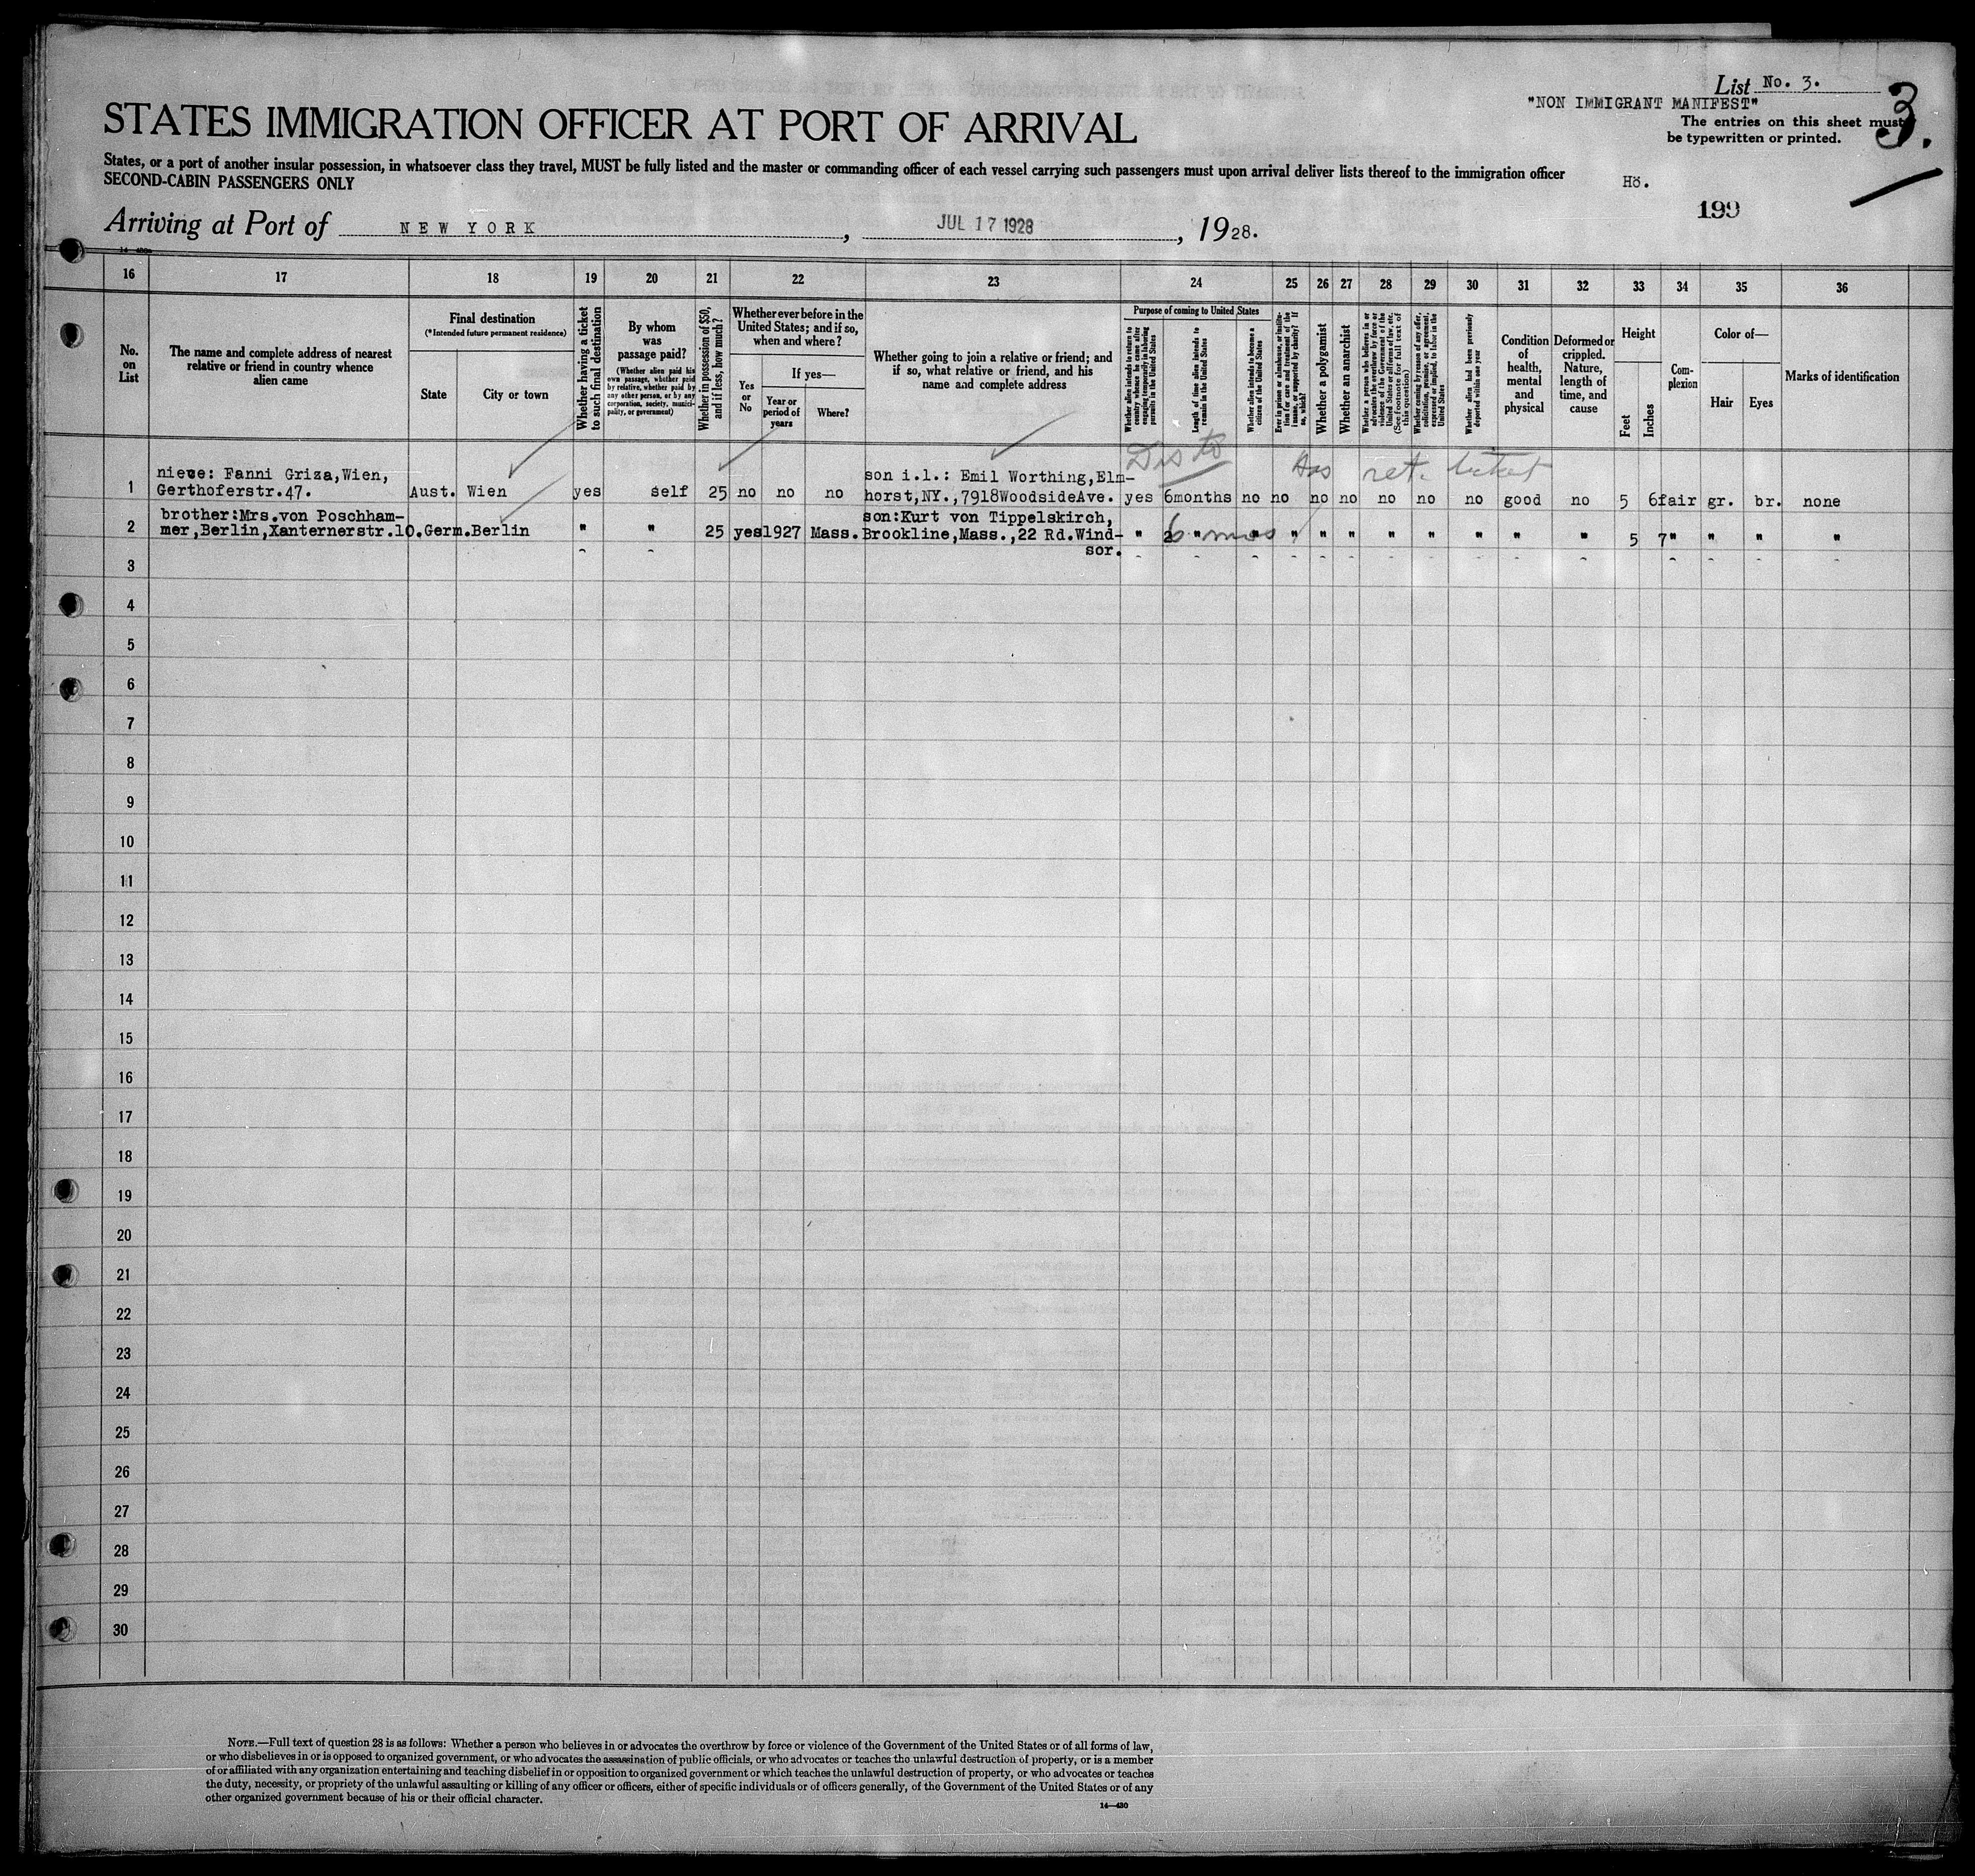 List No. 3.
"NON IMMIGRANT MANIFEST"
3.
STATES IMMIGRATION OFFICER AT PORT OF ARRIVAL
The entries on this sheet must
be typewritten or printed.
States, or a port of another insular possession, in whatsoever class they travel, MUST be fully listed and the master or commanding officer of each vessel carrying such passengers must upon arrival deliver lists thereof to the immigration officer
SECOND-CABIN PASSENGERS ONLY
Hö.
199
Arriving at Port of NEW YORK, JUL 17 1928, 1928.
16 17 18 19 20 21 22 23 24 25 26 27 28 29 30 31 32 33 34 35 36
No. on List
The name and complete address of nearest relative or friend in country whence alien came
Final destination
(*Intended future permanent residence)
State
City or town
Whether having a ticket to such final destination
By whom was passage paid?
(Whether alien paid his own passage, whether paid by relative, whether paid by any other person, or by any corporation, society, municipality, or government)
Whether in possession of $50, and if less, how much?
Whether ever before in the United States; and if so, when and where?
Yes or No
If yes—
Year or period of years
Where?
Whether going to join a relative or friend; and if so, what relative or friend, and his name and complete address
Purpose of coming to United States
Whether alien intends to return to country whence he came after engaging temporarily in laboring pursuits in the United States
Length of time alien intends to remain in the United States
Whether alien intends to become a citizen of the United States
Ever in prison or almshouse, or institution for care and treatment of the insane, or supported by charity? If so, which?
Whether a polygamist
Whether an anarchist
Whether a person who believes in or advocates the overthrow by force or violence of the Government of the United States or all forms of law, etc. (See footnote for full text of this question)
Whether coming by reason of any offer, solicitation, promise, or agreement, expressed or implied, to labor in the United States
Whether alien had been previously deported within one year
Condition of health, mental and physical
Deformed or crippled. Nature, length of time, and cause
Height
Feet
Inches
Complexion
Color of—
Hair
Eyes
Marks of identification
Dis to
has ret. ticket
1 niece: Fanni Griza,Wien, Gerthoferstr.47. Aust. Wien yes self 25 no no no son i.l.: Emil Worthing,Elmhorst,NY.,7918WoodsideAve. yes 6months no no no no no no no good no 5 6 fair gr. br. none
2 brother:Mrs.von Poschhammer,Berlin,Xanternerstr.10. Germ. Berlin " " 25 yes 1927 Mass. son:Kurt von Tippelskirch, Brookline,Mass.,22 Rd.Windsor. " 6 mos " " " " " " " " " 5 7 " " " "
3
4
5
6
7
8
9
10
11
12
13
14
15
16
17
18
19
20
21
22
23
24
25
26
27
28
29
30
NOTE.—Full text of question 28 is as follows: Whether a person who believes in or advocates the overthrow by force or violence of the Government of the United States or of all forms of law,
or who disbelieves in or is opposed to organized government, or who advocates the assassination of public officials, or who advocates or teaches the unlawful destruction of property, or is a member
of or affiliated with any organization entertaining and teaching disbelief in or opposition to organized government or which teaches the unlawful destruction of property, or who advocates or teaches
the duty, necessity, or propriety of the unlawful assaulting or killing of any officer or officers, either of specific individuals or of officers generally, of the Government of the United States or of any
other organized government because of his or their official character.
14—430